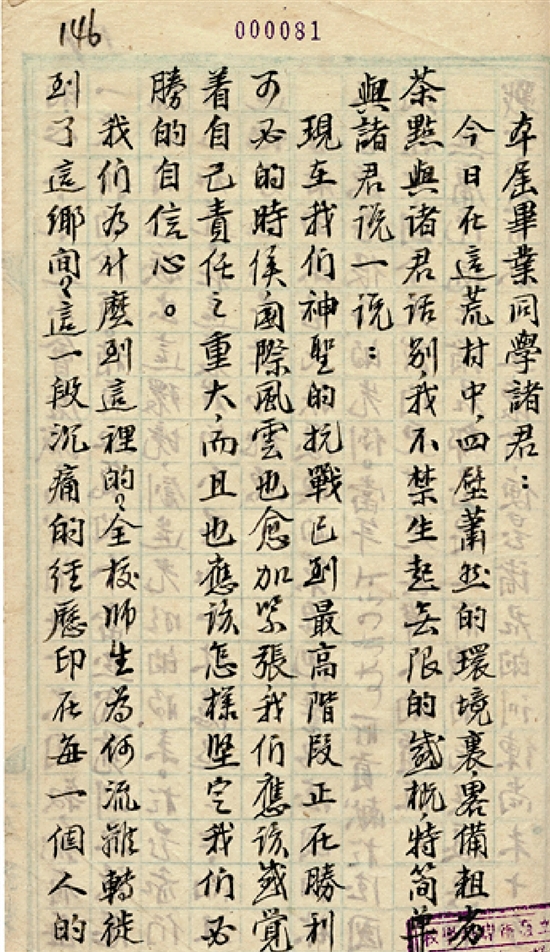 146
000081
本屆畢業同學諸君：
今日在這荒村中，四壁蕭然的環境裏，畧備粗劣
茶點與諸君話別，我不禁生起無限的感概，特簡單
與諸君说一说：
現在我们神聖的抗戰已到最高階段正在勝利
可必的時候，國際風雲也愈加緊張，我们應该感覺
着自己責任之重大，而且也應该怎樣坚定我们必
勝的自信心。
我们為什麽到這裡的？全校师生為何流離轉徙
到了這鄉间？這一段沉痛的经歷印在每一個人的